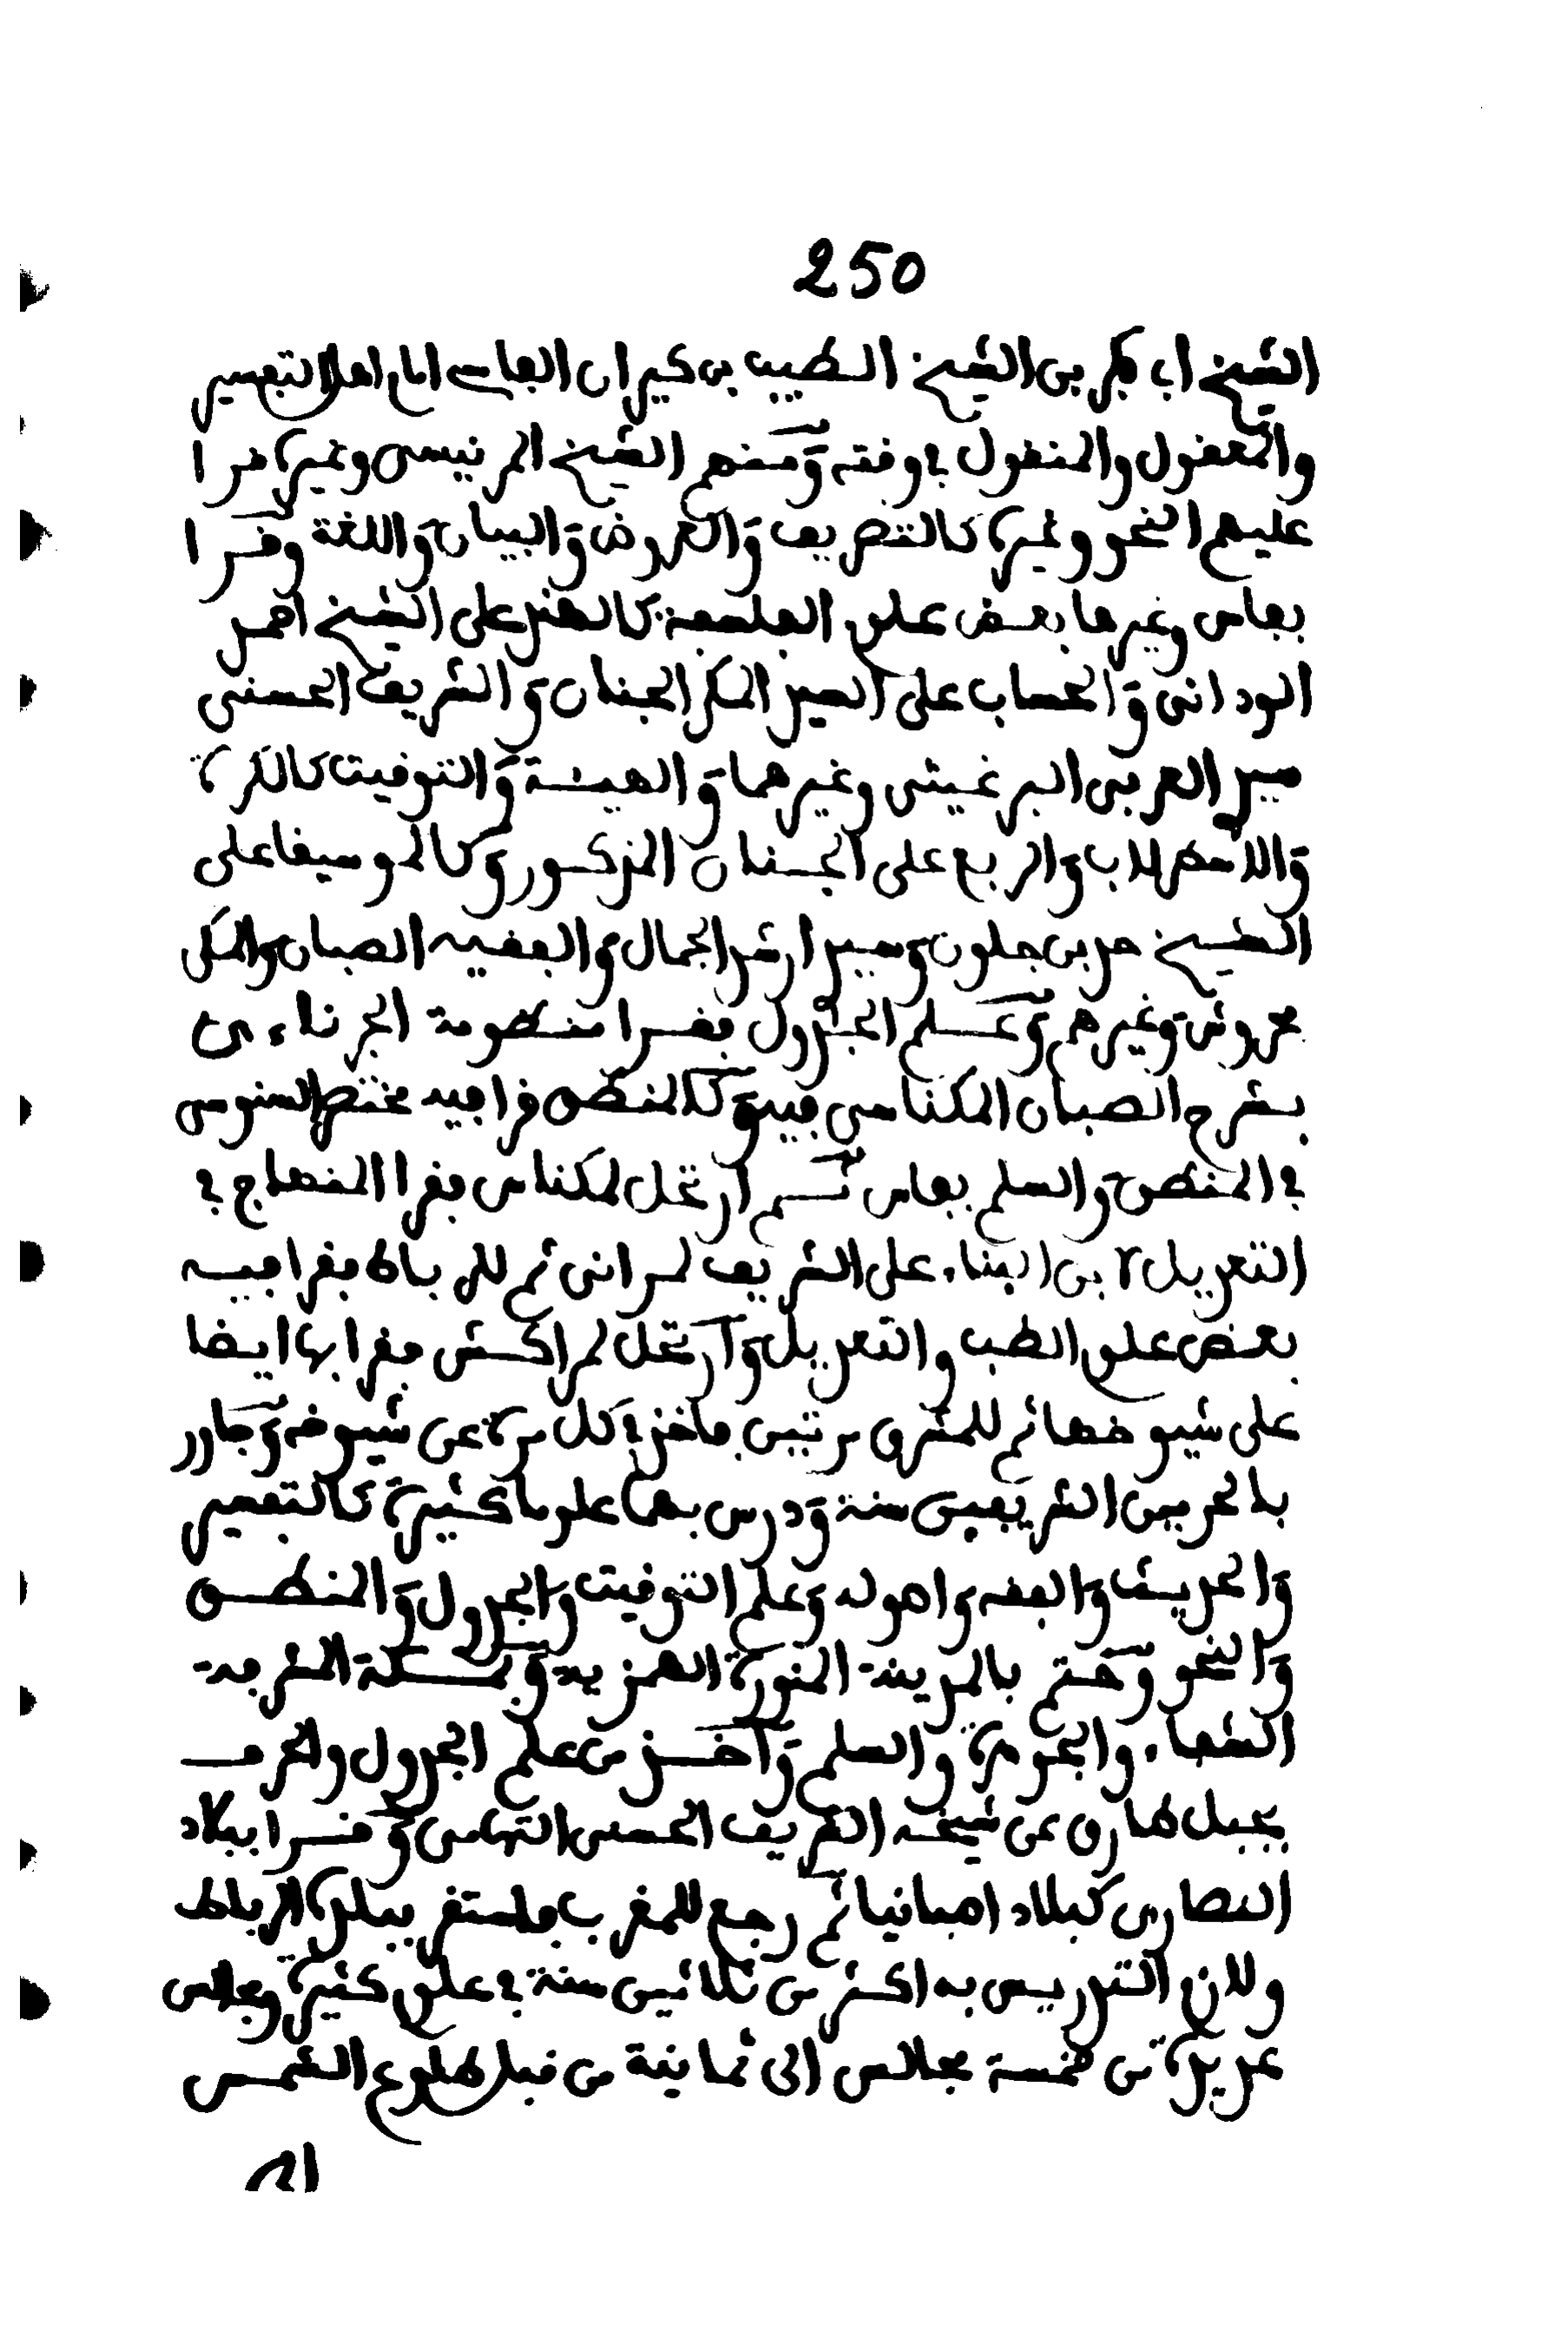 250
الشيخ ابي بكر بن الشيخ الطيب بن كيران الفاسي امام اهل التفسير
والمعقول والمنقول في وقته ومنهم الشيخ المرنيسي وغيره قرا
عليهم النحو وغيره كالتصريف والعروض والبيان واللغة وقرا
بفاس وغيرها بعض علوم الفلسفة كالهندسة على الشيخ احمد
الوداني والحساب على السيد المكي الجنان والشريف الحسني
سيد العربي البرغيشي وغيرهما والهيئة والتوقيت كالكرة
والاصطرلاب والربع على الجنان المذكور وكالموسيقا على
الشيخ حد بن جلون وسيد ارشد الجمال والفقيه الصبان والمكي
محروش وغيرهم وعلم الجدول فقرا منظومة الجزناءي
بشرح الصبان المكناسي فيه وكالمنطق قرا فيه مختصر السنوسي
في المنطق والسلم بفاس ثم ارتحل لمكناس فقرا المنهاج في
التعديل لابن البناء على الشريف لمراني ثم للرباط فقرا فيه
بعض علوم الطب والتعديل وارتحل لمراكش فقرا بها ايضا
على شيوخها ثم للمشرق مرتين فاخذ في كل مرة عن شيوخه وجاور
بالحرمين الشريفين سنة ودرس بهما علوما كثيرة كالتفسير
والحديث والفقه واصوله وعلم التوقيت والجدول والمنطق
والنحو وختم بالمدينة المنورة الهمزية وبمكة المشرفة
الشفاء والجوهرة والسلم واخذ من علم الجدول والحرف
بجبل طارق عن شيخه الشريف الحسني التهامي وقرا ببلاد
النصارى كبلاد اصبانيا ثم رجع للمغرب فاستقر ببلده الرباط
ولازم التدريس به اكثر من ثلاثين سنة في علوم كثيرة ومجالس
عديدة من خمسة مجالس الى ثمانية من قبل طلوع الشمس
الى